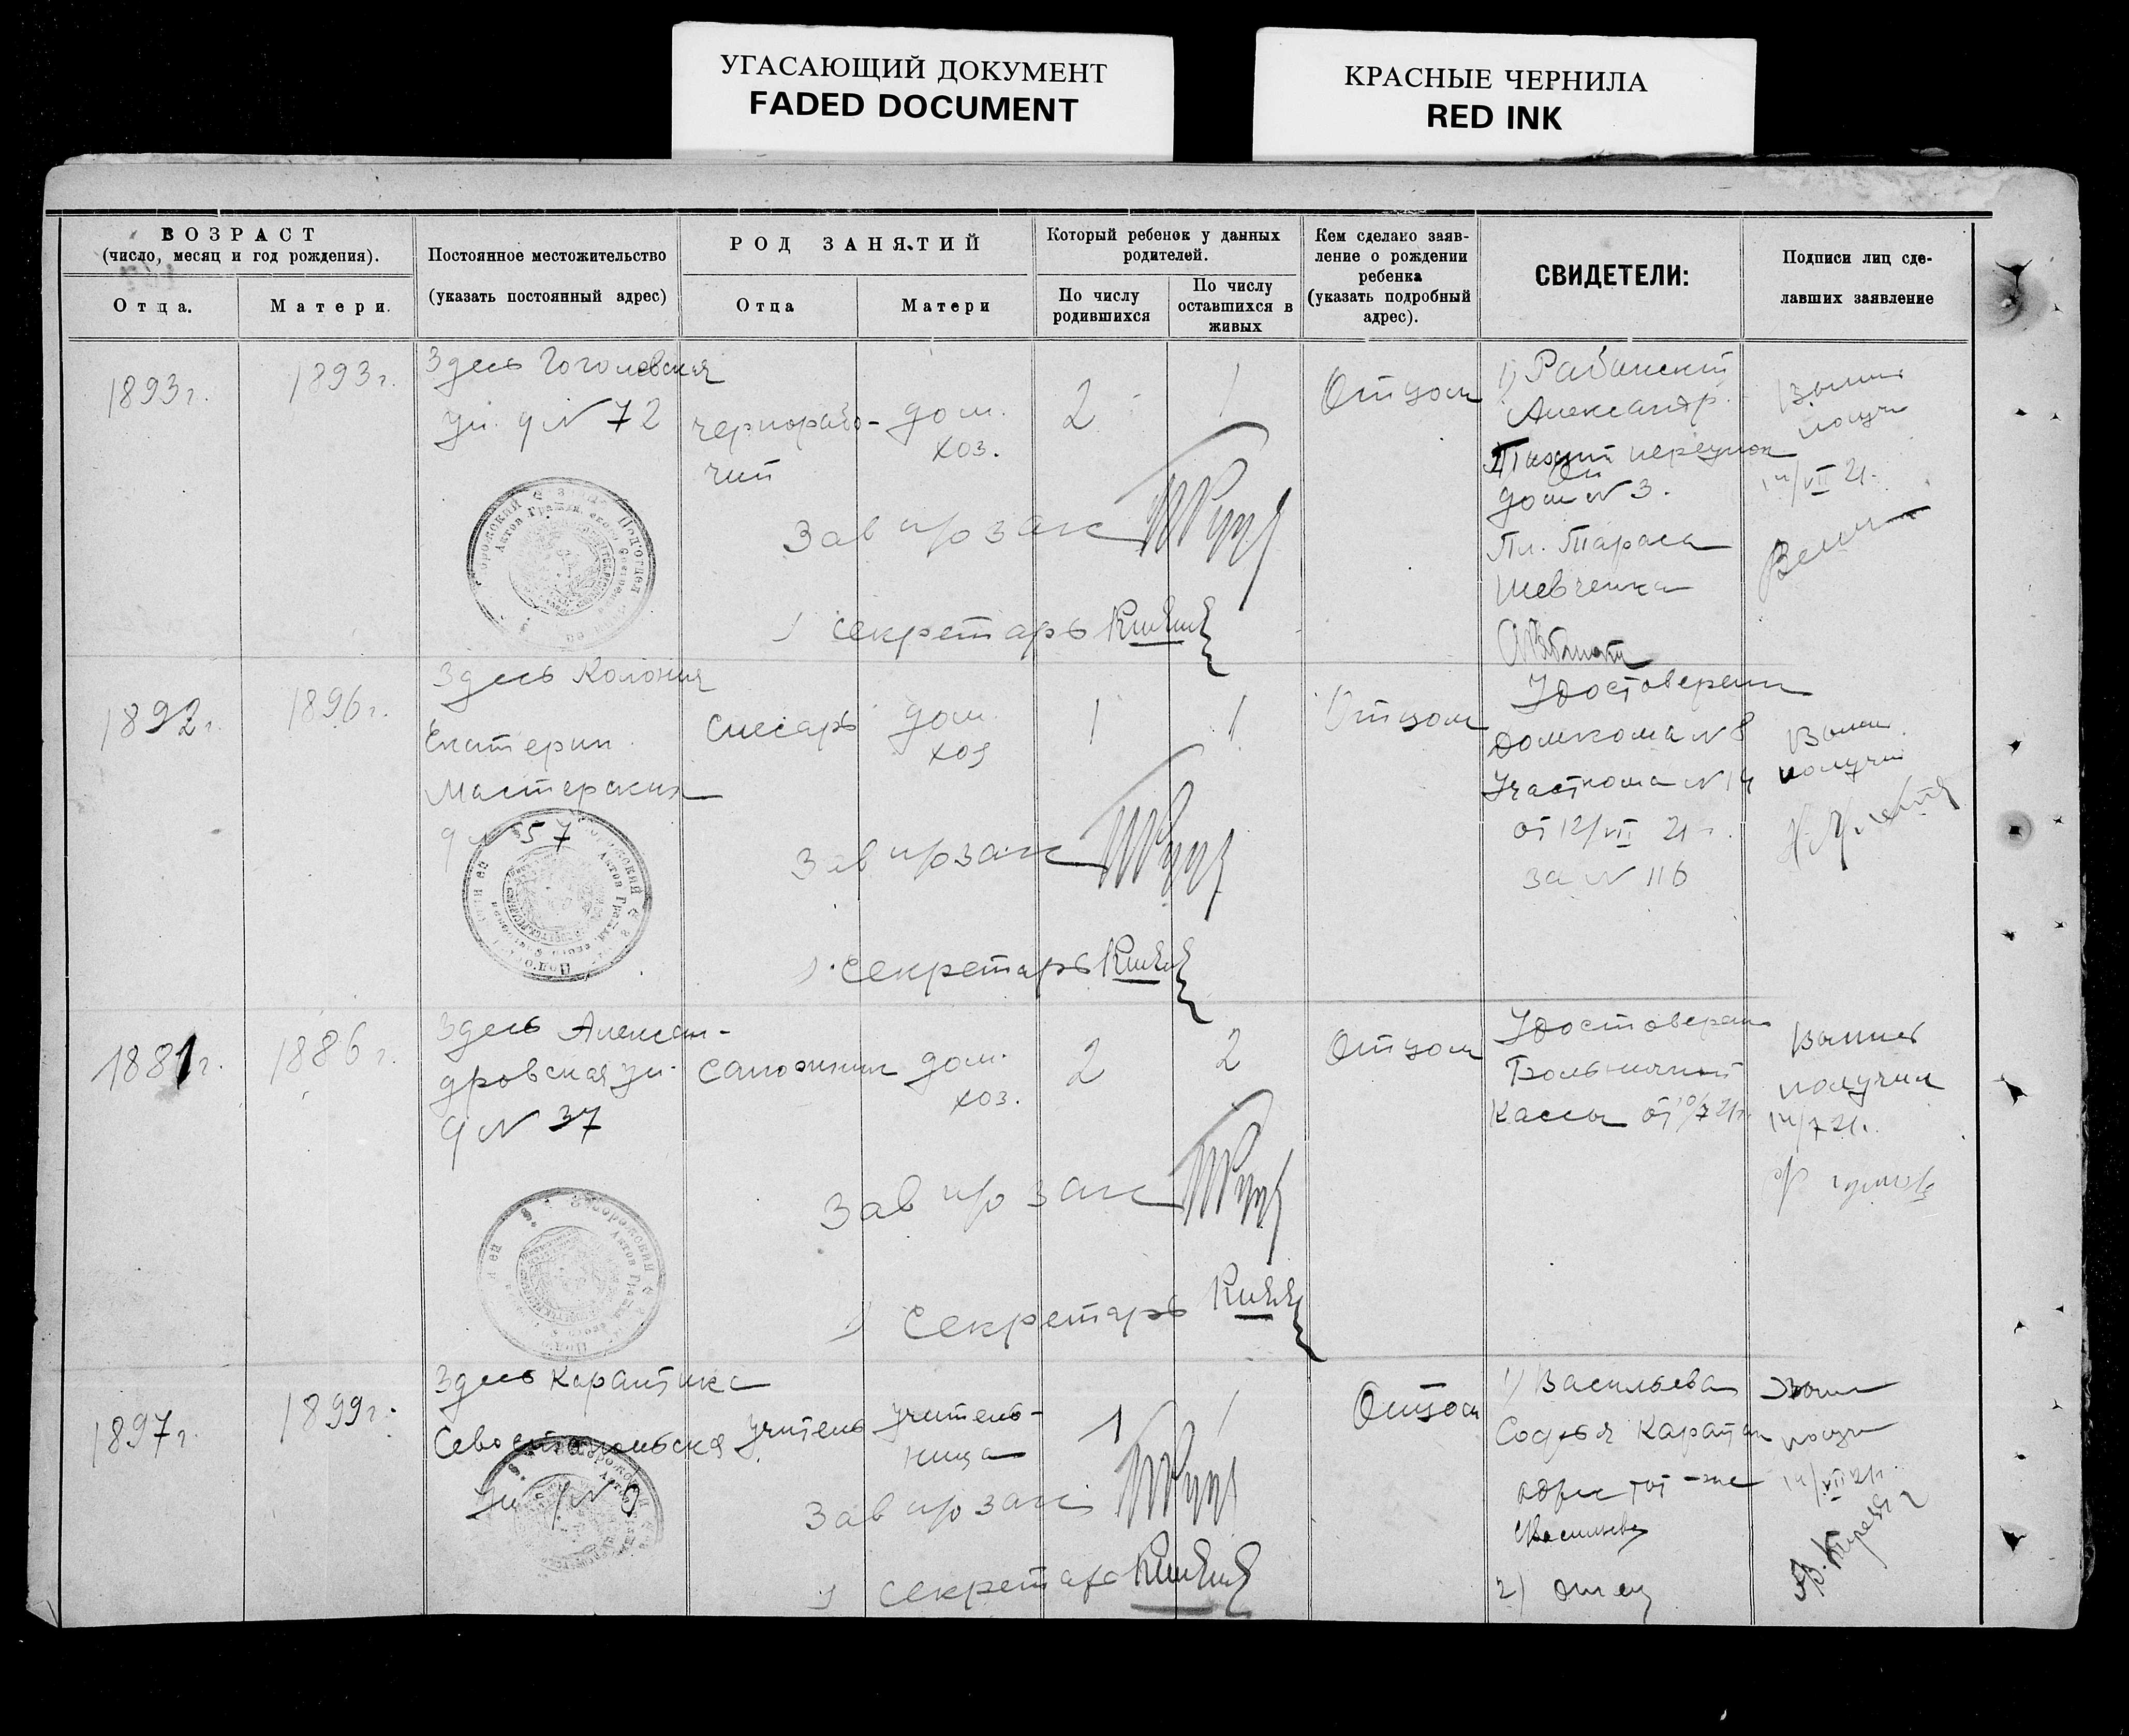 УГАСАЮЩИЙ ДОКУМЕНТ
FADED DOCUMENT
КРАСНЫЕ ЧЕРНИЛА
RED INK
ВОЗРАСТ
(число, месяц и год рождения).
Отца.
Матери.
Постоянное местожительство
(указать постоянный адрес)
РОД ЗАНЯТИЙ
Отца
Матери
Который ребенок у данных
родителей.
По числу
родившихся
По числу
оставшихся в
живых
Кем сделано заяв-
ление о рождении
ребенка
(указать подробный
адрес).
СВИДЕТЕЛИ:
Подписи лиц сде-
лавших заявление
1893г.
1893г.
Здесь Гоголевская
ул. д N 72
чернорабо-
чий
дом.
хоз.
2
1
Отцом
1) Рабинский
Александр.
переулок
дом N 3.
Пл. Тараса
Шевченка
14/VII 21.
Зав п/о зап
Секретарь
1892г.
1896г.
Здесь Колония
Екатерин.
Мастерских
д N 57
Слесарь
дом.
хоз
1
1
Отцом
Удостоверени
Домкома N 8
Участкома N 14
от 12/VII 21г.
за N 116
Зав п/о зап
Секретарь
1881г.
1886г.
Здесь Алексан-
дровская ул.
д N 37
Сапожник
дом.
хоз.
2
2
Отцом
Удостоверен
Больничной
Кассы от 10/7 21г.
получил
14/7 21.
Зав п/о зап
Секретарь
1897г.
1899г.
Здесь Карантинка
Севастопольская
ул д N 9
Учитель
Учитель-
ница
1
1
Отцом
1) Васильева
Софья Карантин
адрес тот-же
Васильева
2) отец
14/VII 21.
Зав п/о зап
Секретарь